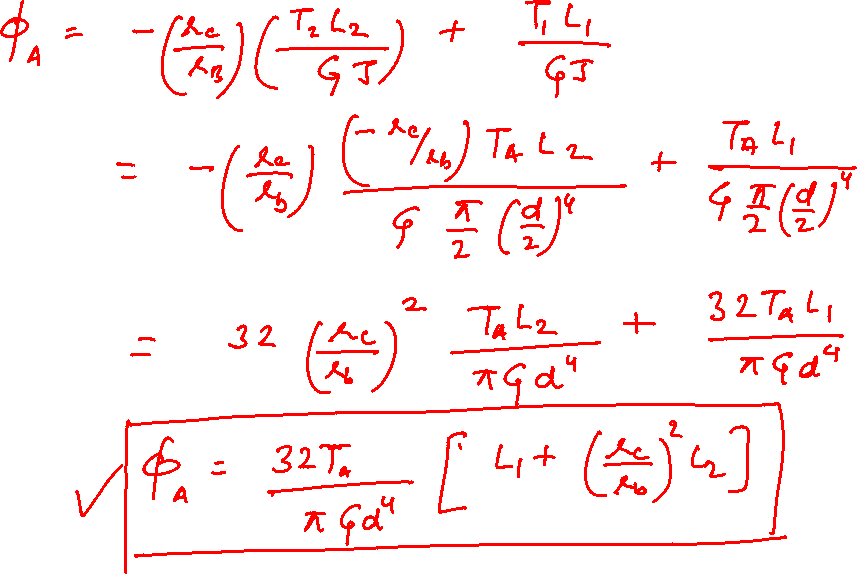 ϕ_A = -(r_c/r_B)(T_2 L_2/GJ) + T_1 L_1/GJ
= -(r_c/r_b) (-r_c/r_b) T_A L_2/(G π/2 (d/2)^4) + T_A L_1/(G π/2 (d/2)^4)
= 32 (r_c/r_b)^2 T_A L_2/(π G d^4) + 32 T_A L_1/(π G d^4)
✓ ϕ_A = 32 T_a/(π G d^4) [L_1 + (r_c/r_b)^2 L_2]